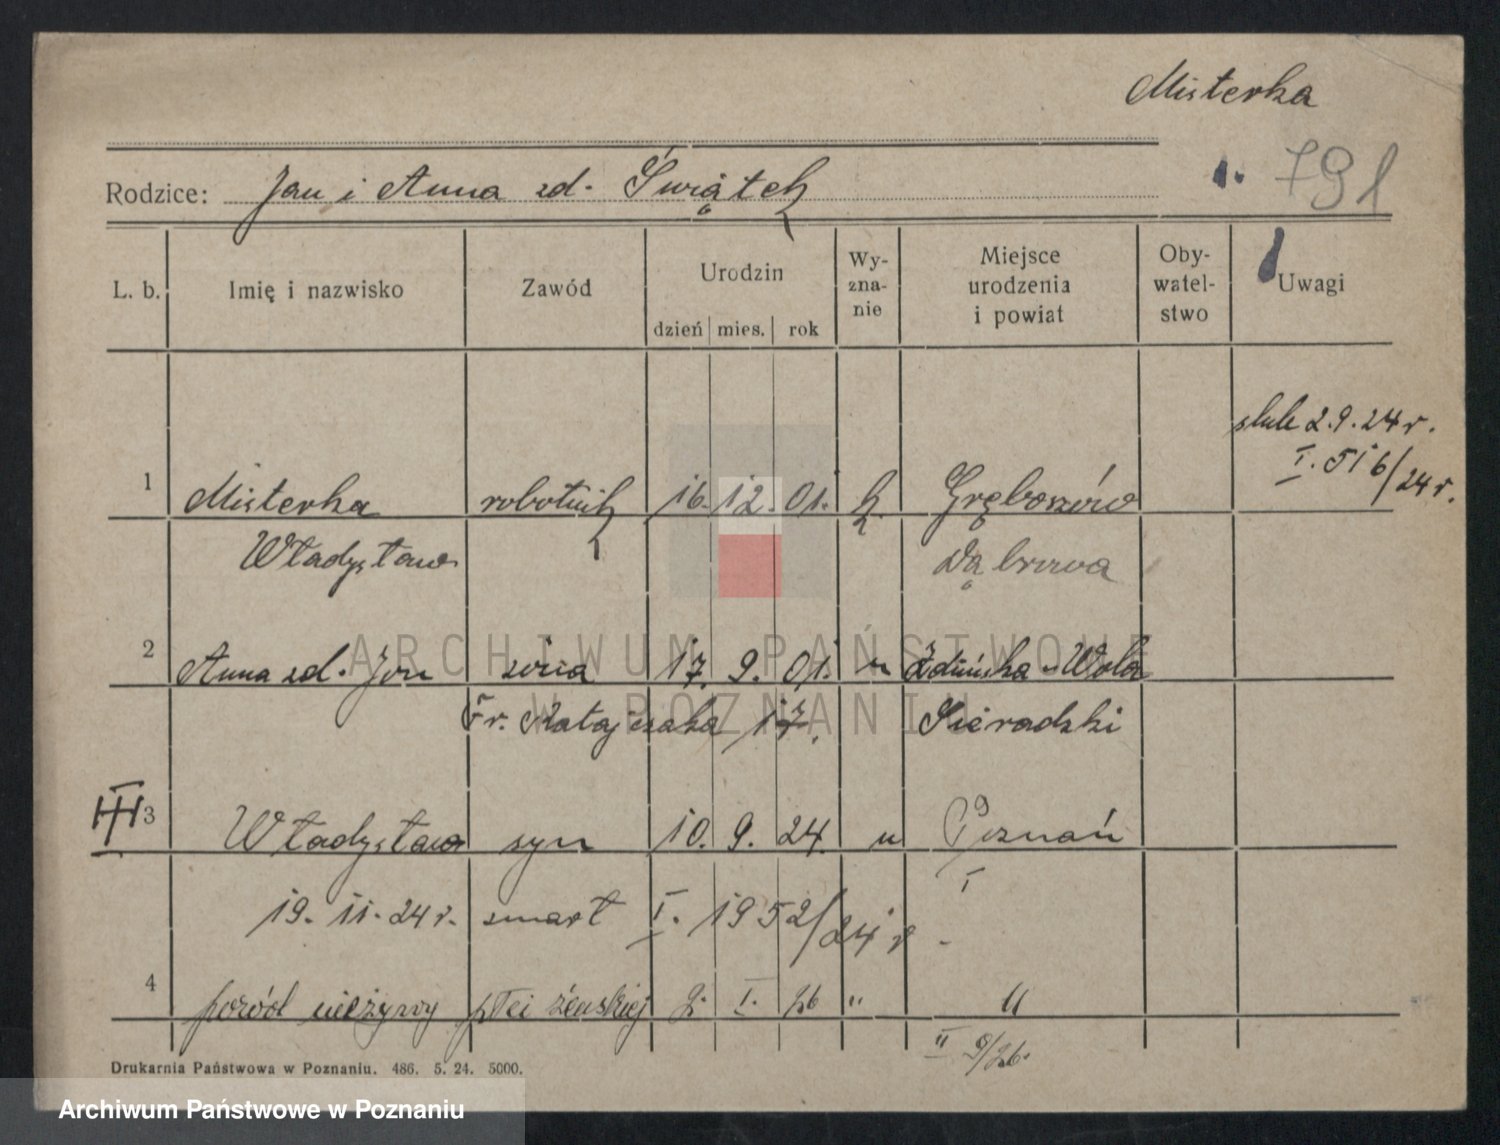 Misterka
Rodzice: Jan i Anna zd. Świątek
1. 791
L. b. Imię i nazwisko Zawód Urodzin dzień mies. rok Wy-zna-nie Miejsce urodzenia i powiat Oby-watel-stwo Uwagi
ślub 2.9.24 r.
I. 516/24 r.
1 Misterka robotnik 16. 12. 01. k. Gręboszów
Władysław Dąbrowa
2 Anna zd. Jon żona 17. 9. 01. " Zduńska-Wola
Fr. Ratajczaka 17. Sieradzki
III 3 Władysław syn 10. 9. 24. " Poznań
I
19. 11. 24 r. zmarł I. 1952/24 r.
4 poród nieżywy płci żeńskiej 2. I. 26 " "
II 9/26.
Drukarnia Państwowa w Poznaniu. 486. 5. 24. 5000.
ARCHIWUM PAŃSTWOWE
W POZNANIU
Archiwum Państwowe w Poznaniu